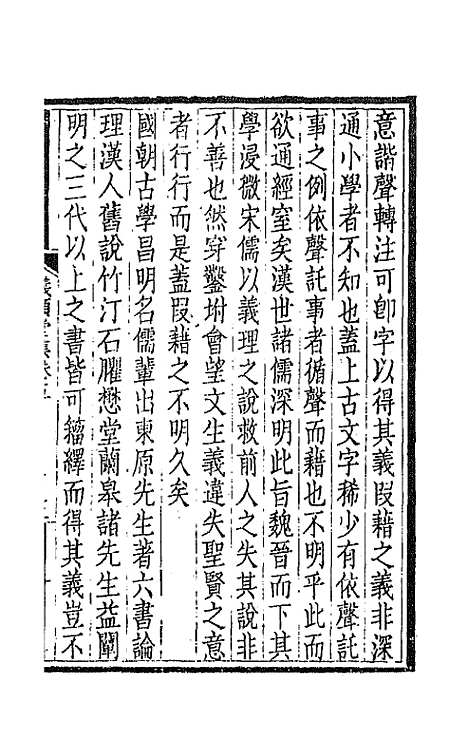 意諧聲轉注可卽字以得其義叚藉之義非深
通小學者不知也蓋上古文字稀少有依聲託
事之例依聲託事者循聲而藉也不明乎此而
欲通經窒矣漢世諸儒深明此旨魏晉而下其
學浸微宋儒以義理之說救前人之失其說非
不善也然穿鑿坿會望文生義違失聖賢之意
者行行而是蓋叚藉之不明久矣
國朝古學昌明名儒輩出東原先生著六書論
理漢人舊說竹汀石臞懋堂蘭皋諸先生益闡
明之三代以上之書皆可籀繹而得其義豈不